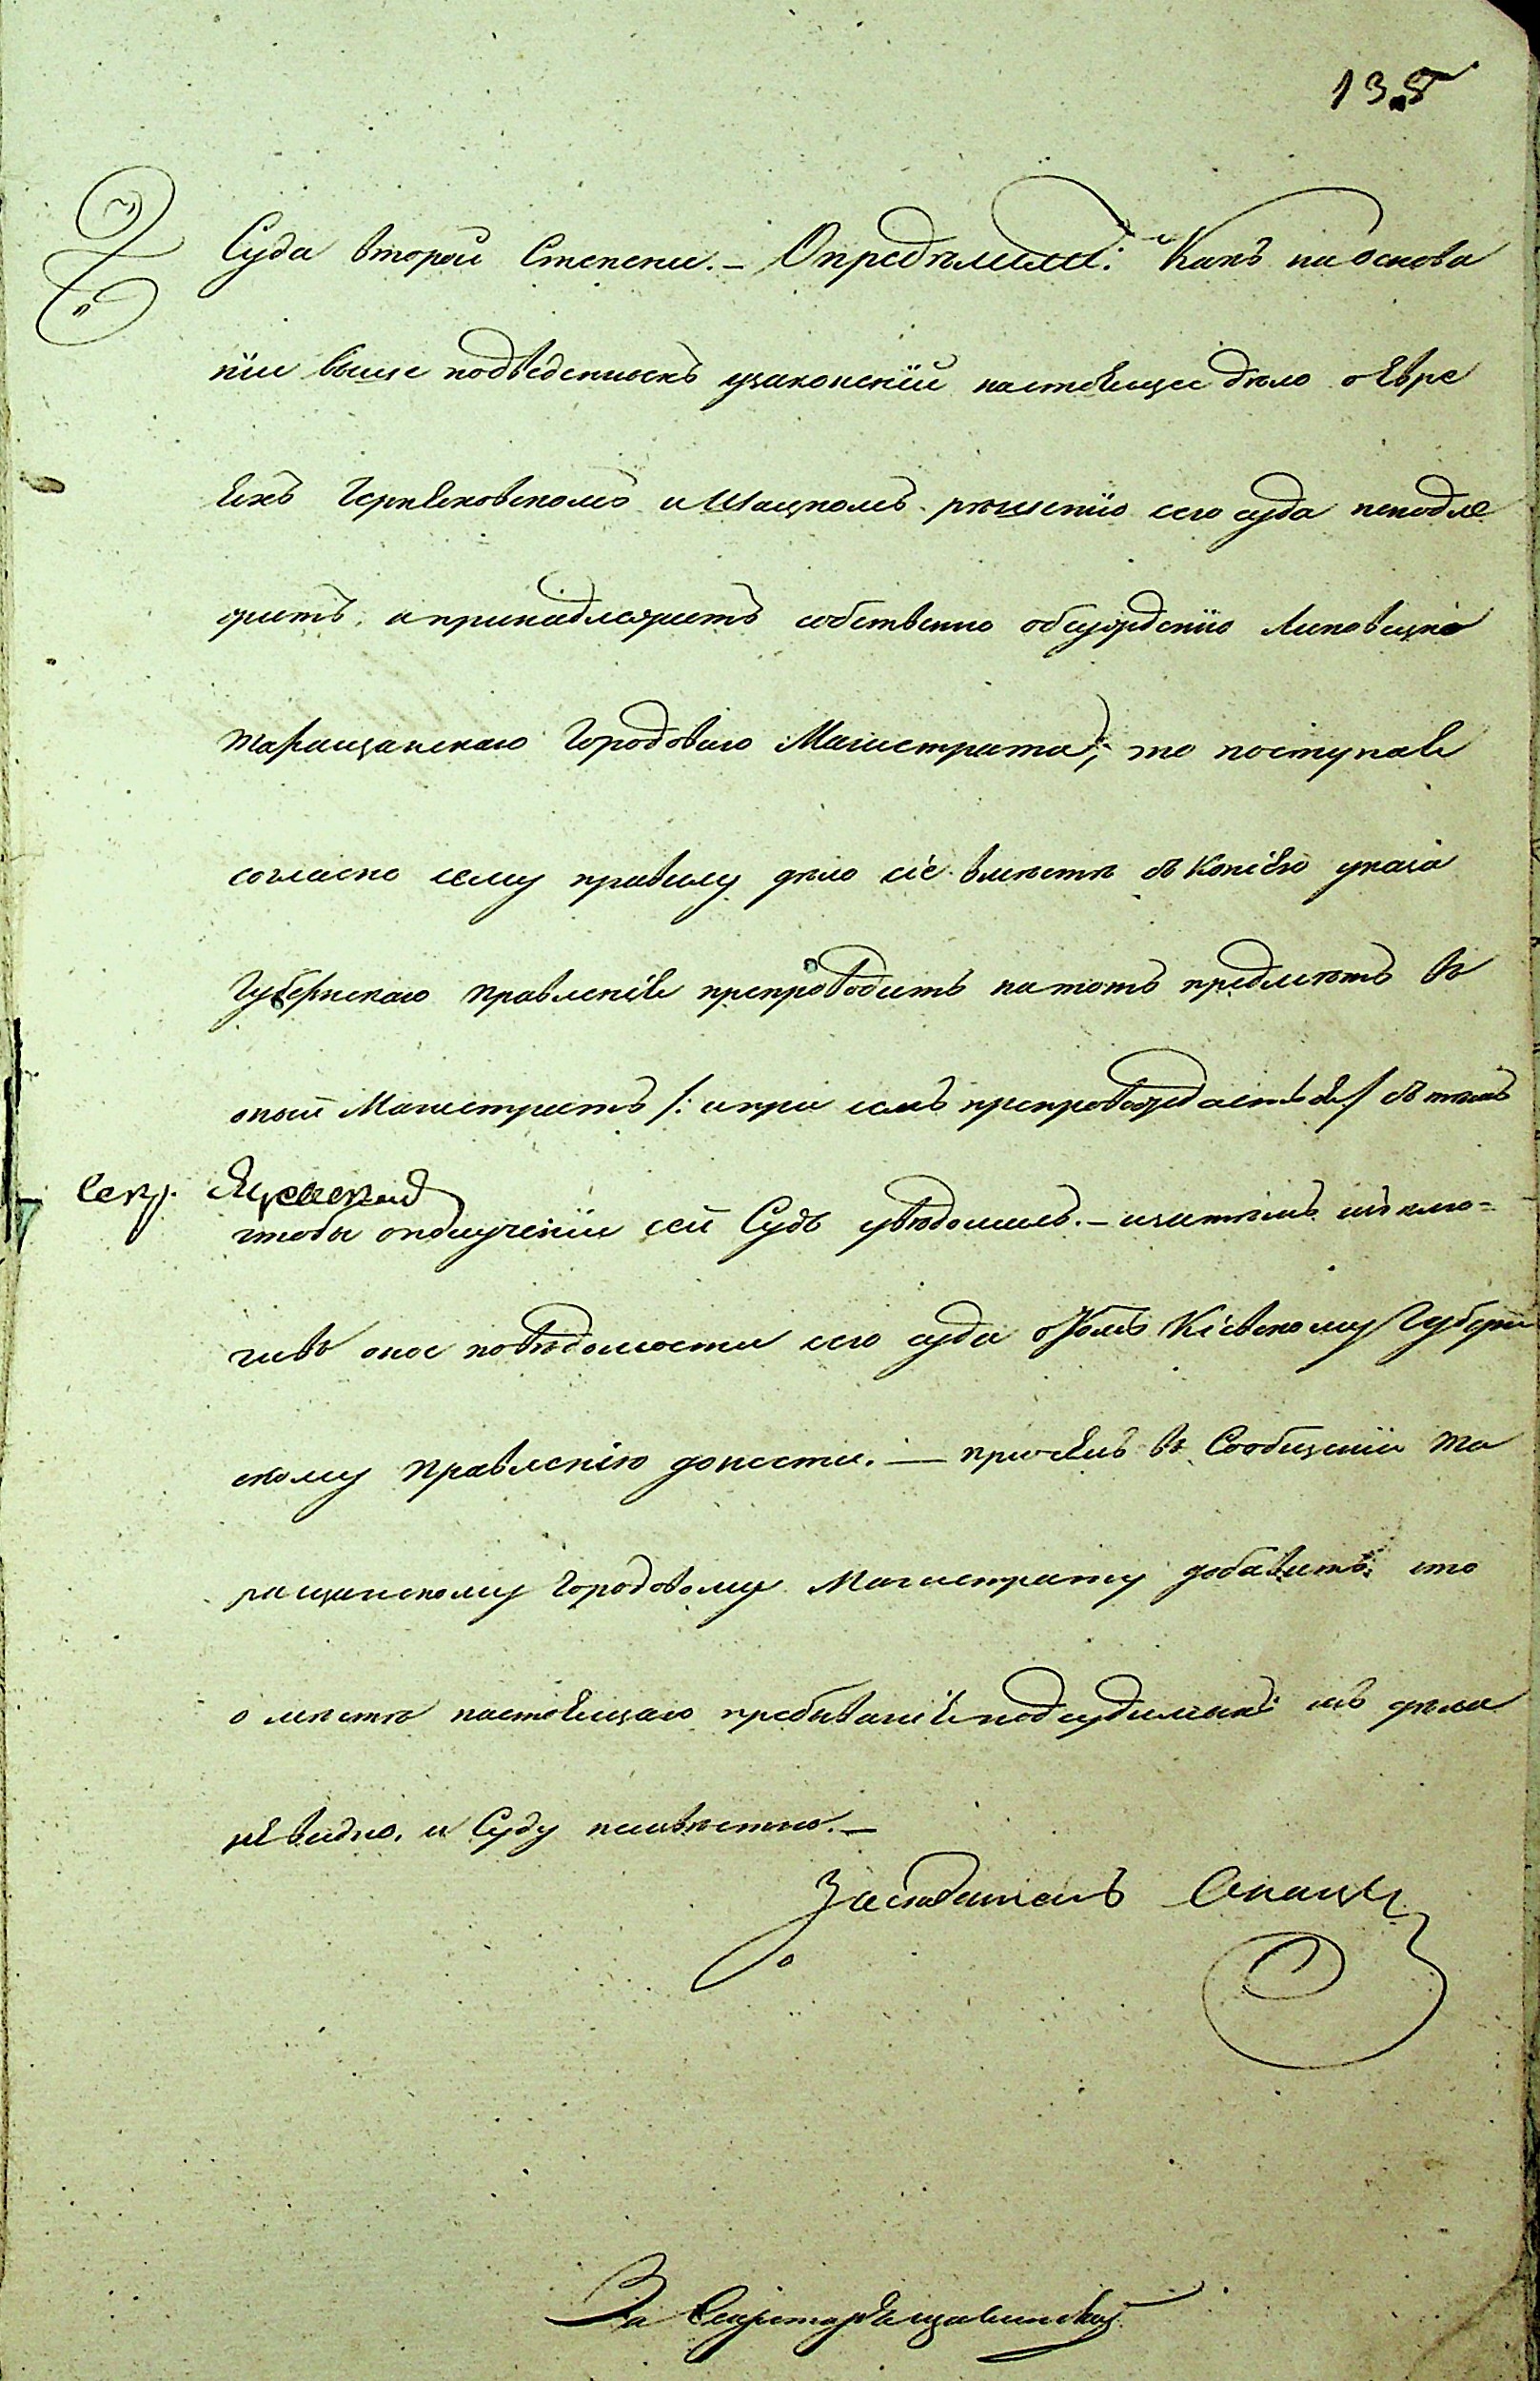 135
Суда второй Степени. — Опредѣлили: Какъ на основа
ніи выше подведенныхъ узаконеній настоящее дѣло о Евре
яхъ Черняховскомъ и Шацкомъ рѣшенію сего суда неподле
житъ, а принадлежитъ собственно обсужденію Липовецко
таращанскаго Городоваго Магистрата; то поступая
согласно сему правилу дѣло сіе вмѣстѣ съ Копіею указа
Губернскаго правленія препроводить на тотъ предметъ въ
оный Магистратъ /: и при семъ препровождается :/ съ тѣмъ
Секр.
чтобы ополученіи сей Судъ увѣдомилъ. — изатѣмъ исклю=
чивъ оное повѣдомости сего суда о томъ Кіевскому Губерн
скому правленію донести. — причемъ въ Сообщеніи та
ращанскому Городовому Магистрату добавить, что
о мѣстѣ настоящаго пребыванія подсудимыхъ изъ дѣла
не видно, и Суду неизвѣстно. —
Засѣдатель
За Секретаря